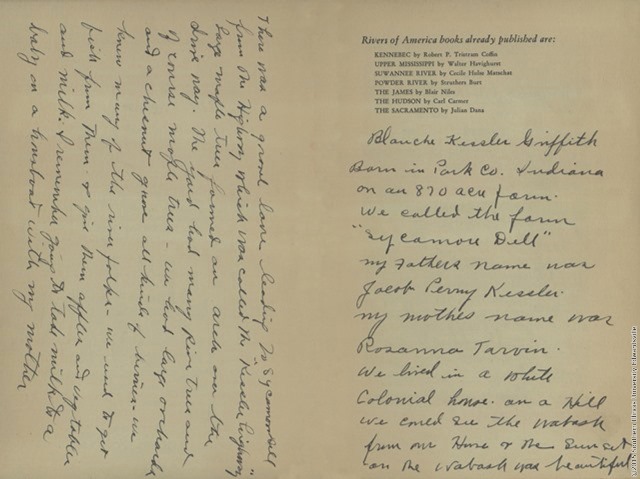 Rivers of America books already published are:
KENNEBEC by Robert P. Tristram Coffin
UPPER MISSISSIPPI by Walter Havighurst
SUWANNEE RIVER by Cecile Hulse Matschat
POWDER RIVER by Struthers Burt
THE JAMES by Blair Niles
THE HUDSON by Carl Carmer
THE SACRAMENTO by Julian Dana
Blanche Kessler Griffith
Born in Park Co. Indiana
on an 870 acre farm.
We called the farm
"Sycamore Dell"
my Fathers name was
Jacob Perry Kessler.
my mothers name was
Rosanna Tarvin.
We lived in a White
Colonial house. on a Hill
we could see the Wabash
from our House & the Sunset
on the Wabash was beautiful
There was a gravel lane leading to Sycamore Dell
from the Highway which was called the "Kessler Highway"
large maple trees formed an arch over the
drive way. The yard had many Pine trees and
of course maple trees - we had large orchards
and a chesnut grove all kinds of berries - we
knew many of the river folks - we used to get
fish from them & give them apples and vegetables
and milk. I remember going to take milk to a
baby on a houseboat with my mother